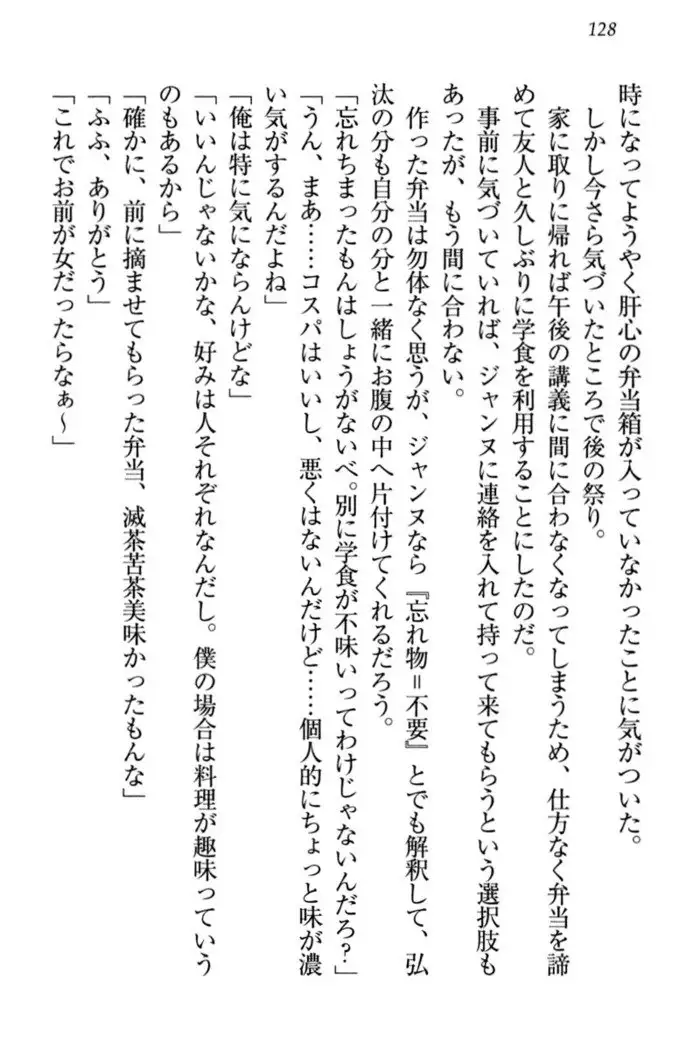 128
時になってようやく肝心の弁当箱が入っていなかったことに気がついた。
しかし今さら気づいたところで後の祭り。
家に取りに帰れば午後の講義に間に合わなくなってしまうため、仕方なく弁当を諦
めて友人と久しぶりに学食を利用することにしたのだ。
事前に気づいていれば、ジャンヌに連絡を入れて持って来てもらうという選択肢も
あったが、もう間に合わない。
作った弁当は勿体なく思うが、ジャンヌなら『忘れ物＝不要』とでも解釈して、弘
汰の分も自分の分と一緒にお腹の中へ片付けてくれるだろう。
「忘れちまったもんはしょうがないべ。別に学食が不味いってわけじゃないんだろ？」
「うん、まあ……コスパはいいし、悪くはないんだけど……個人的にちょっと味が濃
い気がするんだよね」
「俺は特に気にならんけどな」
「いいんじゃないかな、好みは人それぞれなんだし。僕の場合は料理が趣味っていう
のもあるから」
「確かに、前に摘ませてもらった弁当、滅茶苦茶美味かったもんな」
「ふふ、ありがとう」
「これでお前が女だったらなぁ～」